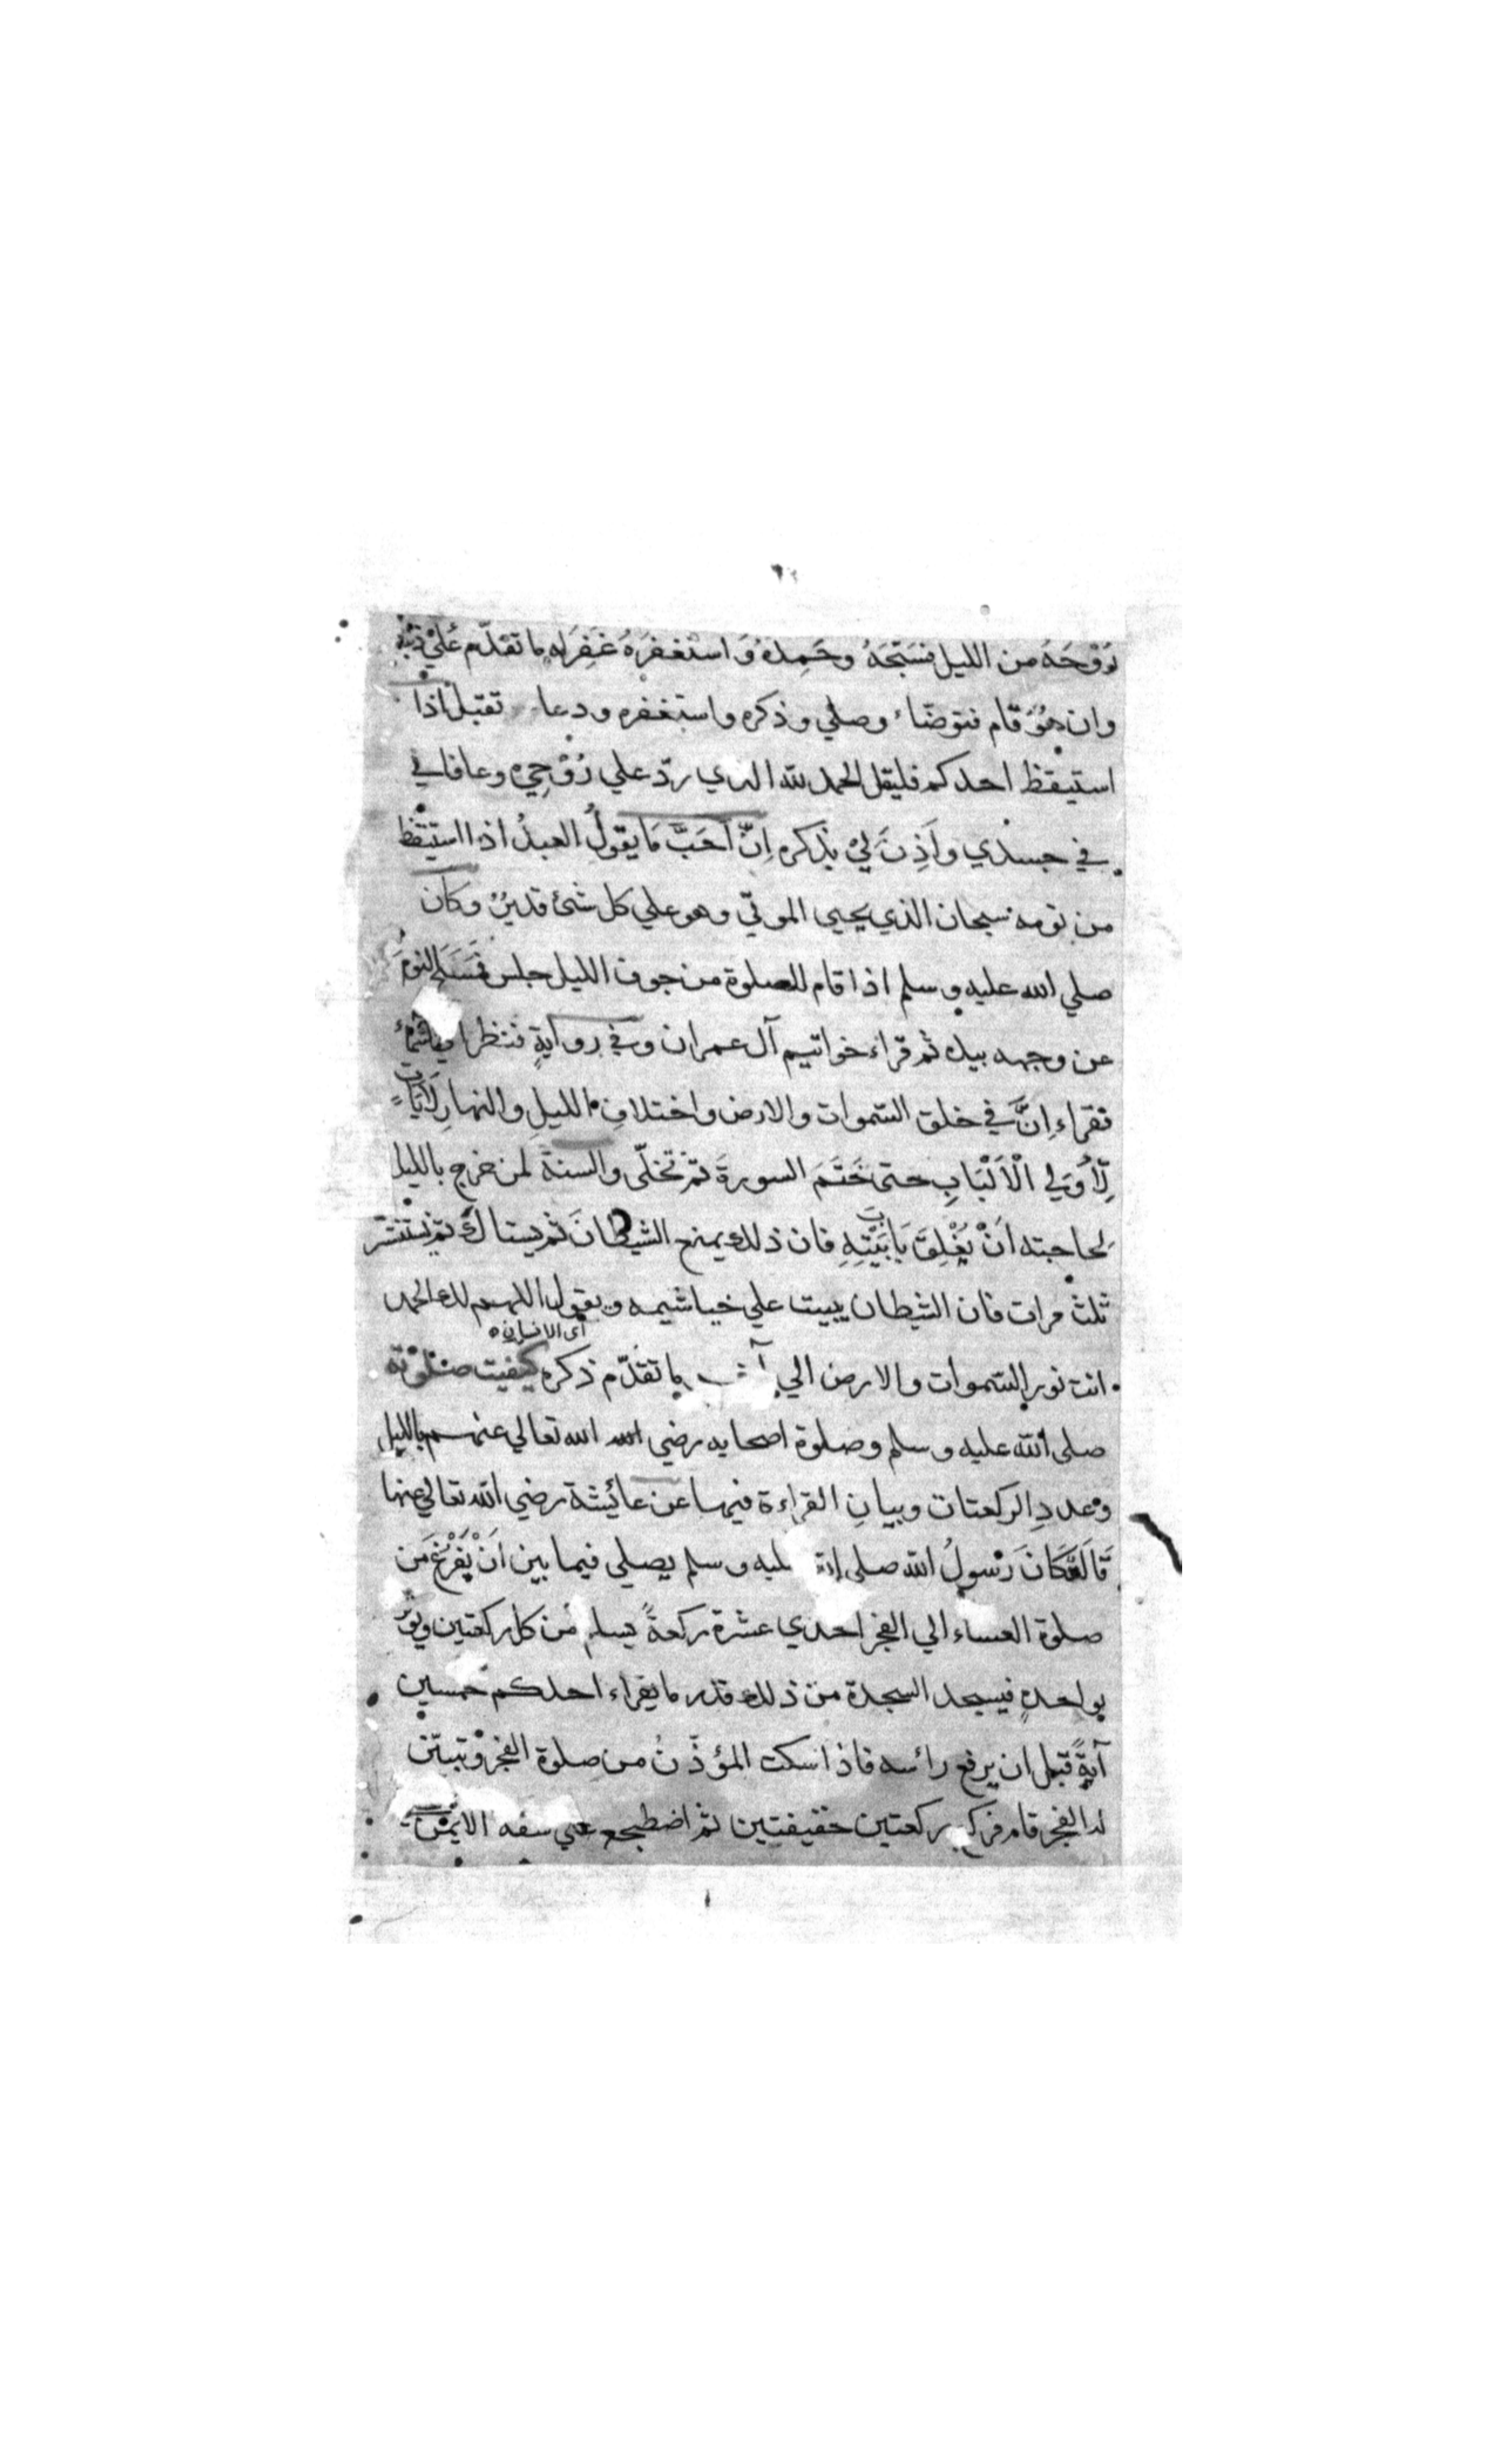 رُوْحَهُ من الليل فسَبّحَهُ وحَمِدهُ وَاستغفرَهُ غَفِرَله ما تقدّم عليْ ذنبه
وان هُوَ قام فتوضّاء وصلي وذكره واستغفره ودعا تقبل اذا
استيقظ احدكم فليقل الحمد لله الذي ردّ علي رُوْحِيْ وعافاني
في جسدي وَاَذِنَ ليْ بذكره اِنّ اَحَبَّ مَا يقولُ العبدُ اذا استيقظ
من نومه سبحان الذي يحيي الموتي وهو علي كل شئ قديرٌ وكان
صلي الله عليه وسلم اذا قام للصلوة من جوف الليل جلس فمَسَحَ النومَ
عن وجهه بيده ثم قراء خواتيم آل عمران وفي روايةٍ فنظر
فقراء اِنَّ في خلق السّموات والارض واختلافِ الليلِ والنهارِ لَآياتٍ
لّاُوْلي الْاَلْبَابِ حتى خَتَمَ السورةَ ثم تخلّى والسنة لمن خرج بالليل
لحاجته اَنْ يُغْلِقَ بَابَ بَيْتِهِ فان ذلك يمنع الشيطانَ ثم يستاك ثم يستنثر
ثلث مرات فان الشيطان يبيت علي خياشيمه ويقول اللهم لك الحمد
اى الانسان
انت نور السّموات والارض الي ما تقدّم ذكره كيفيت صلوته
صلى الله عليه وسلم وصلوة اصحابه رضي الله الله تعالي عنهم بالليل
وعددِ الركعتات وبيانِ القراءة فيها عن عائيشة رضي الله تعالي عنها
قَالَتْ كَانَ رَسولُ الله صلى الله عليه وسلم يصلي فيما بين اَنْ يَفْرُغَ مَن
صلوة العساء الي الفجر احدي عشرة ركعةً يسلم من كل ركعتين ويوتر
بواحدةٍ فيسجد السجدة من ذلك قدر ما يقراء احدكم خمسين
آيةً قبل ان يرفع رائسه فاذا سكت المؤذّنُ من صلوة الفجر وتبيّن
له الفجر قام فركع ركعتين خفيفتين ثم اضطجع علي شقه الايمن